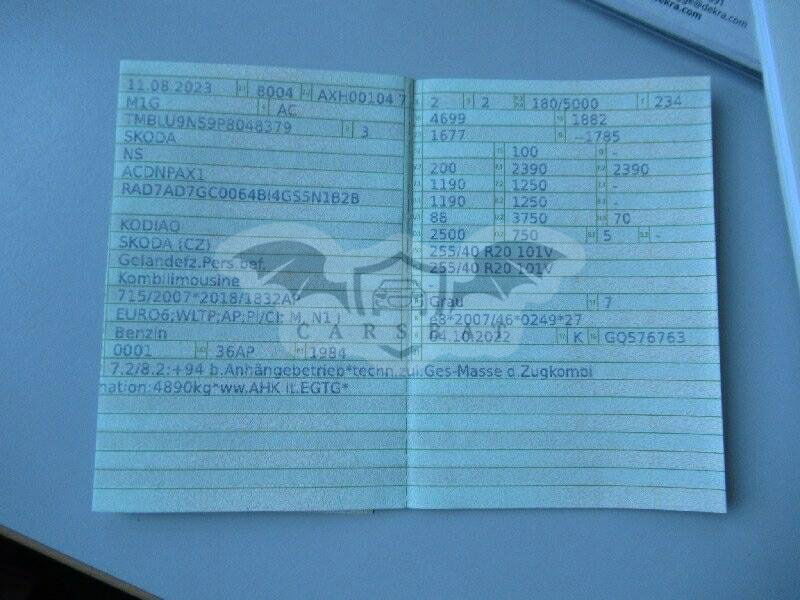 11.08.2023 8004 AXH00104 7
M1G AC
TMBLU9NS9P8048379 3
SKODA
NS
ACDNPAX1
RAD7AD7GC0064BI4GS5N1B2B
KODIAQ
SKODA (CZ)
Geländefz.Pers.bef.
Kombilimousine
715/2007*2018/1832AP
EURO6;WLTP;AP;PI/CI; M, N1 I
Benzin
0001 36AP 1984
7.2/8.2:+94 b.Anhängebetrieb*techn.zul.Ges-Masse d.Zugkombi
nation:4890kg*ww.AHK lt.EGTG*
2 2 180/5000 234
4699 1882
1677 --1785
100 -
200 2390 2390
1190 1250 -
1190 1250 -
88 3750 70
2500 750 5 -
255/40 R20 101V
255/40 R20 101V
-
Grau 7
e8*2007/46*0249*27
04.10.2022 K GQ576763
CARSBAT
@dekra.com
dekra.com